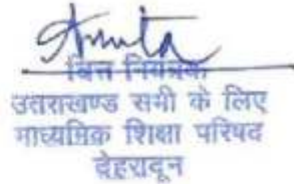 Amita
वित्त नियंत्रक
उत्तराखण्ड सभी के लिए
माध्यमिक शिक्षा परिषद
देहरादून